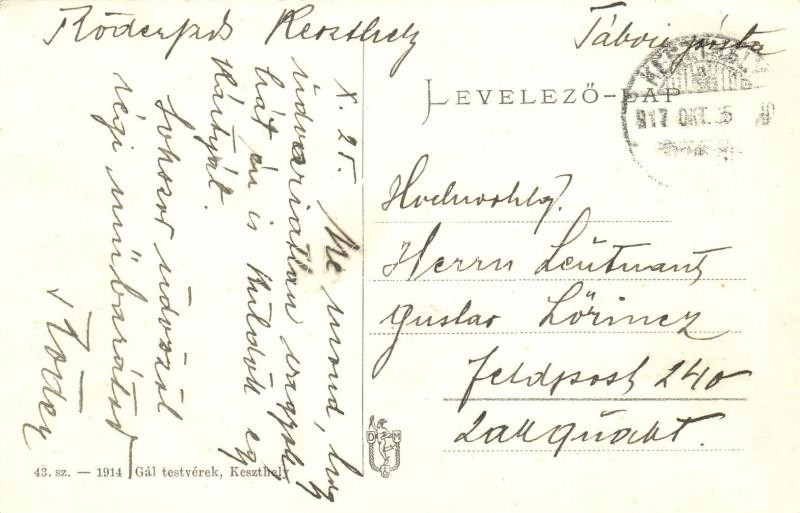 Röder Keszthely
Tábori posta
LEVELEZŐ-LAP
KESZTHELY
917 OKT. 25
X. 25. Ne mond, hogy
udvariatlan vagyok
hát én is küldök egy
kártyát.
Sokszor üdvözöl
régi műbarátod
Röder
Hochwohlg.
Herrn Leutnant
Gustav Lőrincz
Feldpost 240
D M
43. sz. — 1914 Gál testvérek, Keszthely